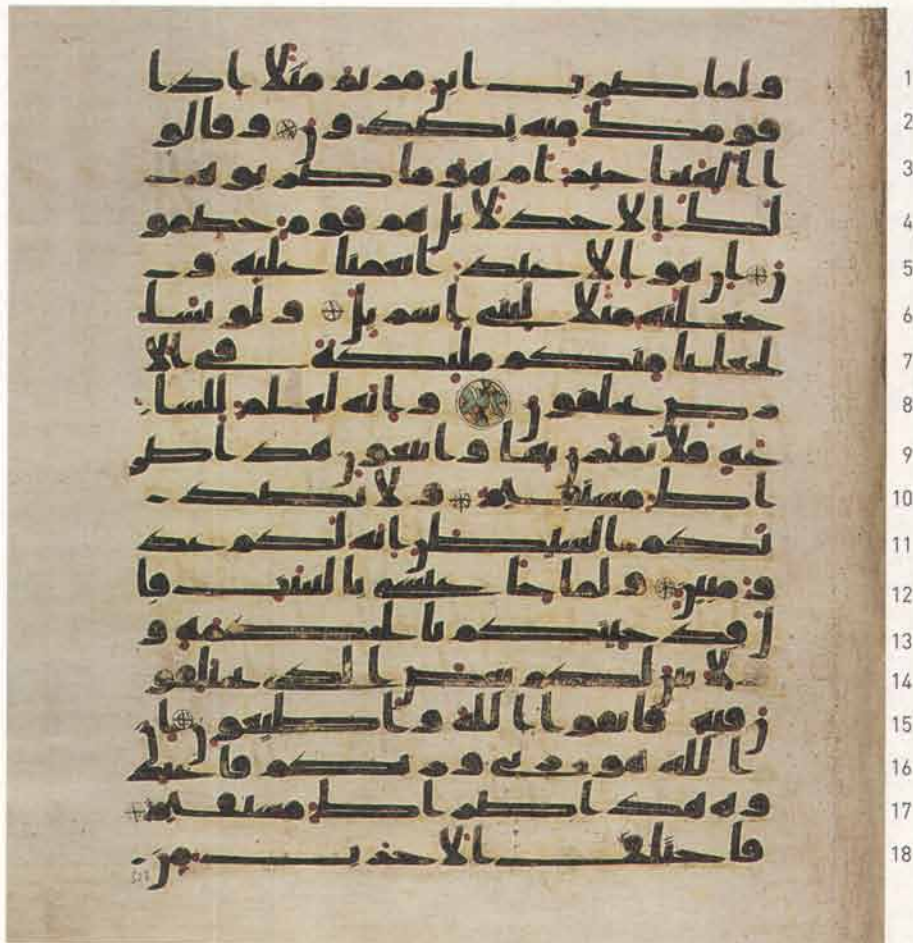 1 ولما ضرب ابن مريم مثلا اذا
2 قومك منه يصدون وقالو
3 ا الهتنا خير ام هو ما ضربوه
4 لك الا جدلا بل هم قوم خصمو
5 ن ان هو الا عبد انعمنا عليه و
6 جعلنه مثلا لبني اسريل ولو نشا
7 لجعلنا منكم مليكة في الا
8 رض يخلفون وانه لعلم للسا
9 عة فلا تمترن بها واتبعون هذا صر
10 اط مستقيم ولا يصد
11 نكم الشيطن انه لكم عد
12 و مبين ولما جا عيسى بالبينت قا
13 ل قد جيتكم بالحكمة و
14 لابين لكم بعض الذي تختلفو
15 ن فيه فاتقوا الله واطيعون ان
16 الله هو ربي وربكم فاعبد
17 وه هذا صراط مستقيم
18 فاختلف الاحزب من